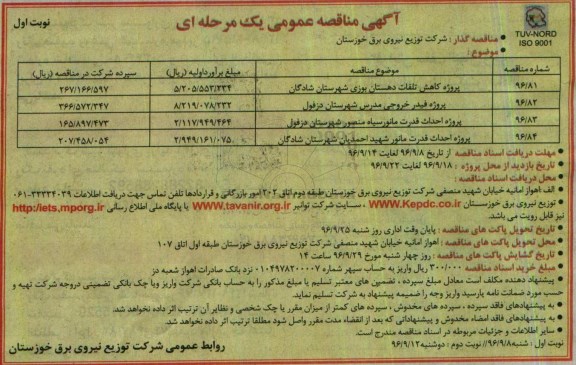 آگهی مناقصه عمومی یک مرحله ای
نوبت اول
TUV-NORD
ISO 9001
مناقصه گذار: شرکت توزیع نیروی برق خوزستان
موضوع :
شماره مناقصه موضوع مناقصه مبلغ برآورداولیه (ریال) سپرده شرکت در مناقصه (ریال)
۹۶/۸۱ پروژه کاهش تلفات دهستان بوزی شهرستان شادگان ۵/۲۰۵/۵۵۳/۲۳۴ ۲۶۷/۱۶۶/۵۹۷
۹۶/۸۲ پروژه فیدر خروجی مدرس شهرستان دزفول ۸/۲۱۹/۰۷۸/۲۳۲ ۳۶۶/۵۷۲/۳۴۷
۹۶/۸۳ پروژه احداث قدرت مانورسیاه منصور شهرستان دزفول ۲/۱۱۷/۹۴۹/۴۶۴ ۱۶۵/۸۹۷/۴۷۳
۹۶/۸۴ پروژه احداث قدرت مانور شهید احمدیان شهرستان شادگان ۲/۹۴۹/۱۶۱/۰۷۵ ۲۰۷/۴۵۸/۰۵۴
مهلت دریافت اسناد مناقصه از تاریخ ۹۶/۹/۸ لغایت ۹۶/۹/۱۴
تاریخ بازدید از محل پروژه ۹۶/۹/۱۸ لغایت ۹۶/۹/۲۲
محل دریافت اسناد مناقصه:
الف :اهواز امانیه خیابان شهید منصفی شرکت توزیع نیروی برق خوزستان طبقه دوم اتاق ۲۰۲ امور بازرگانی و قراردادها تلفن تماس جهت دریافت اطلاعات ۳۳۳۳۴۰۳۹-۰۶۱
توزیع نیروی برق خوزستان www.Kepdc.co.ir ، سایت شرکت توانیر www.tavanir.org.ir یا پایگاه ملی اطلاع رسانی http:/iets.mporg.ir
نیز قابل رویت می باشد.
تاریخ تحویل پاکت های مناقصه : پایان وقت اداری روز شنبه ۹۶/۹/۲۵
محل تحویل پاکت های مناقصه : اهواز امانیه خیابان شهید منصفی شرکت توزیع نیروی برق خوزستان طبقه اول اتاق ۱۰۷
تاریخ گشایش پاکت های مناقصه : روز چهار شنبه مورخ ۹۶/۹/۲۹ ساعت ۱۴
مبلغ خرید اسناد مناقصه ۳۰۰/۰۰۰ ریال واریز به حساب سپهر شماره ۰۱۰۴۹۷۸۲۰۰۰۰۷ نزد بانک صادرات اهواز شعبه دز
پیشنهاد دهنده مکلف است معادل مبلغ سپرده ، تضمین های معتبر تسلیم یا مبلغ مذکور را به حساب بانکی شرکت واریز ویا چک بانکی تضمینی دروجه شرکت تهیه و
حسب مورد ضمانت نامه یارسید واریز وجه را ضمیمه پیشنهاد به شرکت تسلیم نماید.
به پیشنهادهای فاقد سپرده ، سپرده های مخدوش ، سپرده های کمتر از میزان مقرر یا چک شخصی و نظایر آن ترتیب اثر داده نخواهد شد.
به پیشنهادهای فاقد امضاء مخدوش و پیشنهاداتی که بعد از انقضاء مدت مقرر واصل شود مطلقا ترتیب اثر داده نخواهد شد.
سایر اطلاعات و جزئیات مربوطه در اسناد مناقصه مندرج است.
نوبت اول : شنبه۹۶/۹/۸// نوبت دوم : دوشنبه۹۶/۹/۱۲
روابط عمومی شرکت توزیع نیروی برق خوزستان